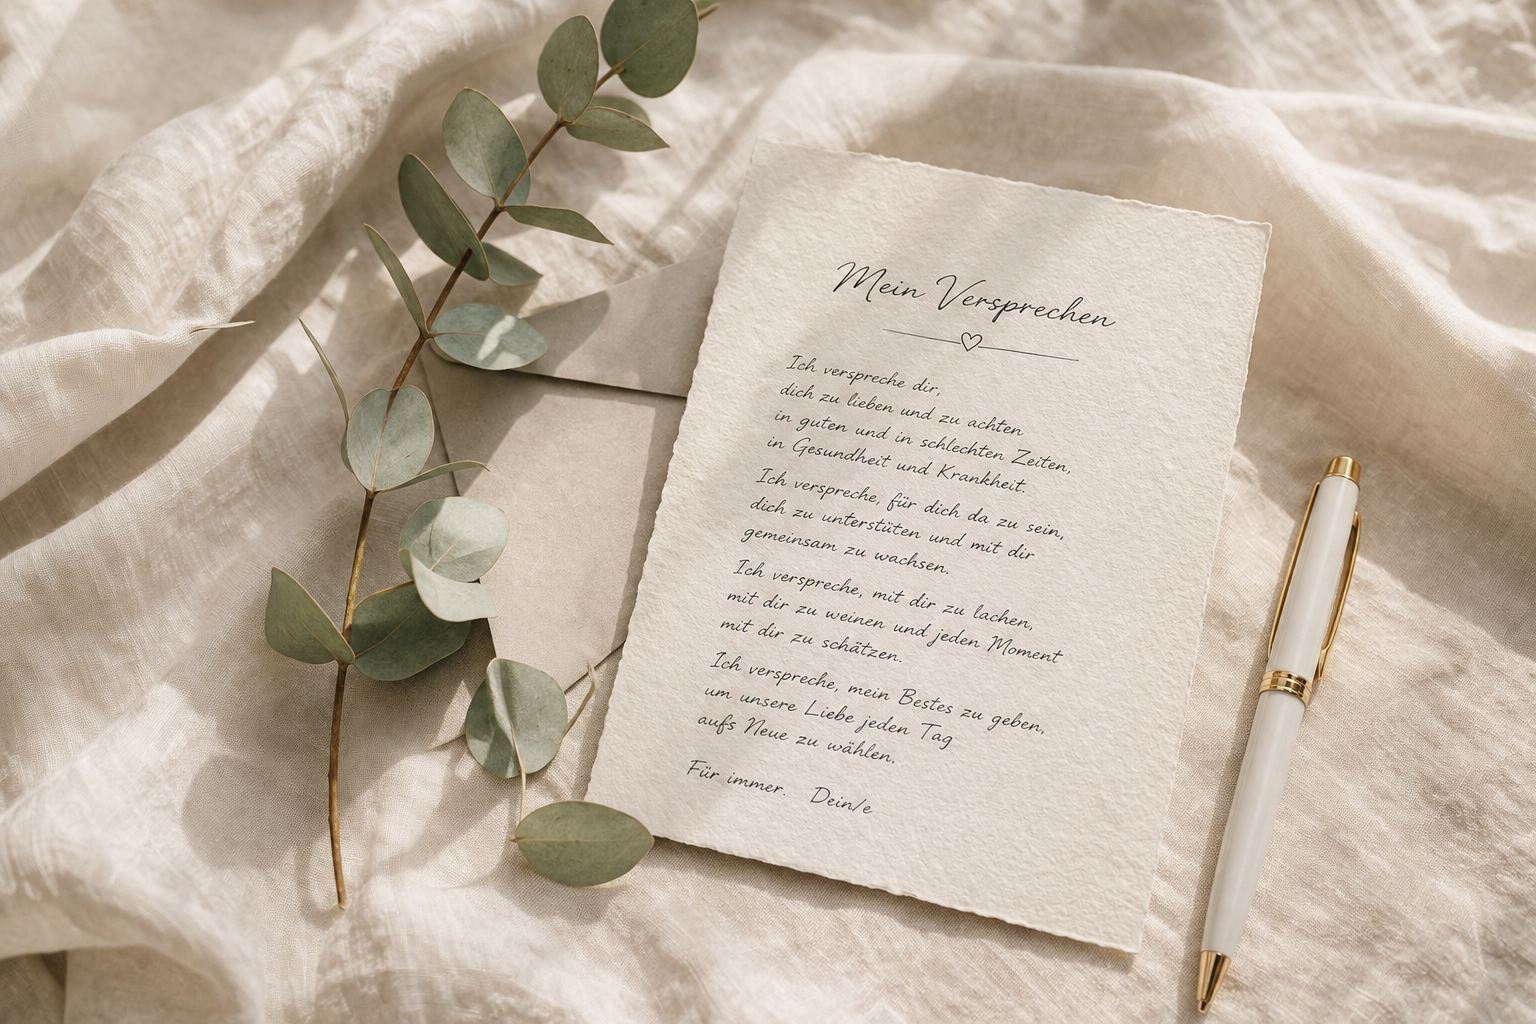 Mein Versprechen
Ich verspreche dir,
dich zu lieben und zu achten
in guten und in schlechten Zeiten,
in Gesundheit und Krankheit.
Ich verspreche, für dich da zu sein,
dich zu unterstüten und mit dir
gemeinsam zu wachsen.
Ich verspreche, mit dir zu lachen,
mit dir zu weinen und jeden Moment
mit dir zu schätzen.
Ich verspreche, mein Bestes zu geben,
um unsere Liebe jeden Tag
aufs Neue zu wählen.
Für immer. Dein/e